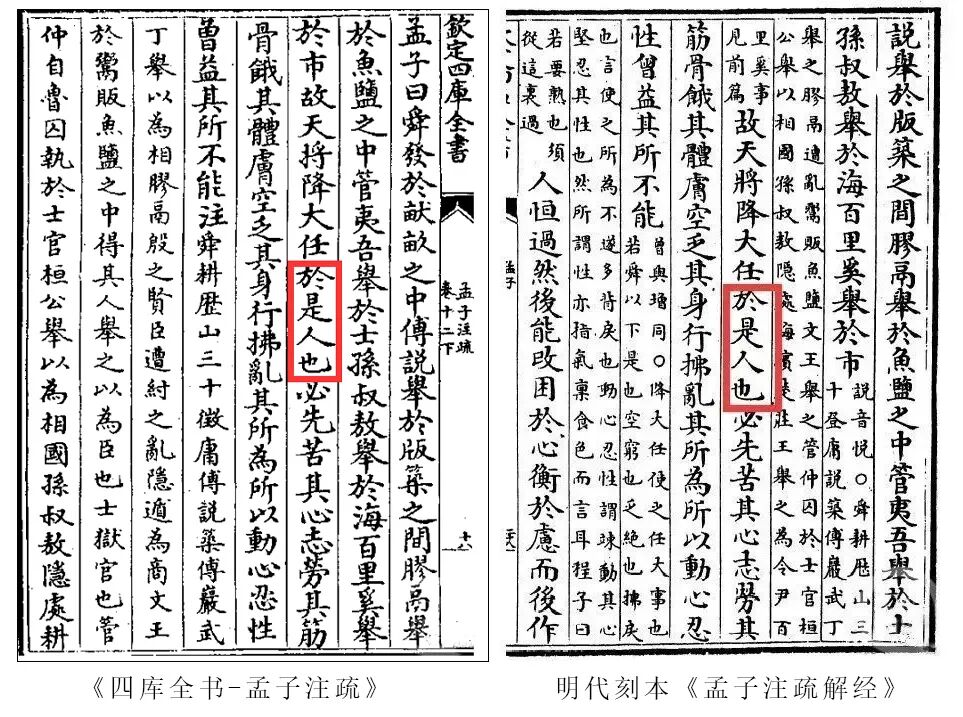 欽定四庫全書
孟子注疏
卷十二下
十八
孟子曰舜發於畎畝之中傅說舉於版築之間膠鬲舉
於魚鹽之中管夷吾舉於士孫叔敖舉於海百里奚舉
於市故天將降大任於是人也必先苦其心志勞其筋
骨餓其體膚空乏其身行拂亂其所為所以動心忍性
曾益其所不能注舜耕歷山三十徵庸傅說築傅巖武
丁舉以為相膠鬲殷之賢臣遭紂之亂隱遁為商文王
於鬻販魚鹽之中得其人舉之以為臣也士獄官也管
仲自魯囚執於士官桓公舉以為相國孫叔敖隱處耕
《四库全书-孟子注疏》
說舉於版築之間膠鬲舉於魚鹽之中管夷吾舉於士
孫叔敖舉於海百里奚舉於市
說音悅○舜耕歷山三
十登庸說築傅巖武丁
舉之膠鬲遭亂鬻販魚鹽文王舉之管仲囚於士官桓
公舉以相國孫叔敖隱處海濱楚莊王舉之為令尹百
里奚事
見前篇
故天將降大任於是人也必先苦其心志勞其
筋骨餓其體膚空乏其身行拂亂其所為所以動心忍
性曾益其所不能
曾與增同○降大任使之任大事也
若舜以下是也空窮也乏絕也拂戾
也言使之所為不遂多背戾也動心忍性謂竦動其心
堅忍其性也然所謂性亦指氣稟食色而言耳程子曰
若要熟也須
從這裏過
人恒過然後能改困於心衡於慮而後作
孟子
明代刻本《孟子注疏解经》